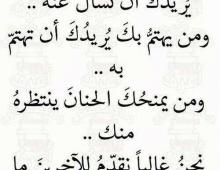 يُريدُكَ أن تسأل عنه ..
ومن يهتمُّ بكَ يُريدُكَ أن تهتمّ
به ..
ومن يمنحُكَ الحنانَ ينتظرهُ
منك ..
نحنُ غالباً نقدّمُ للآخرينَ ما